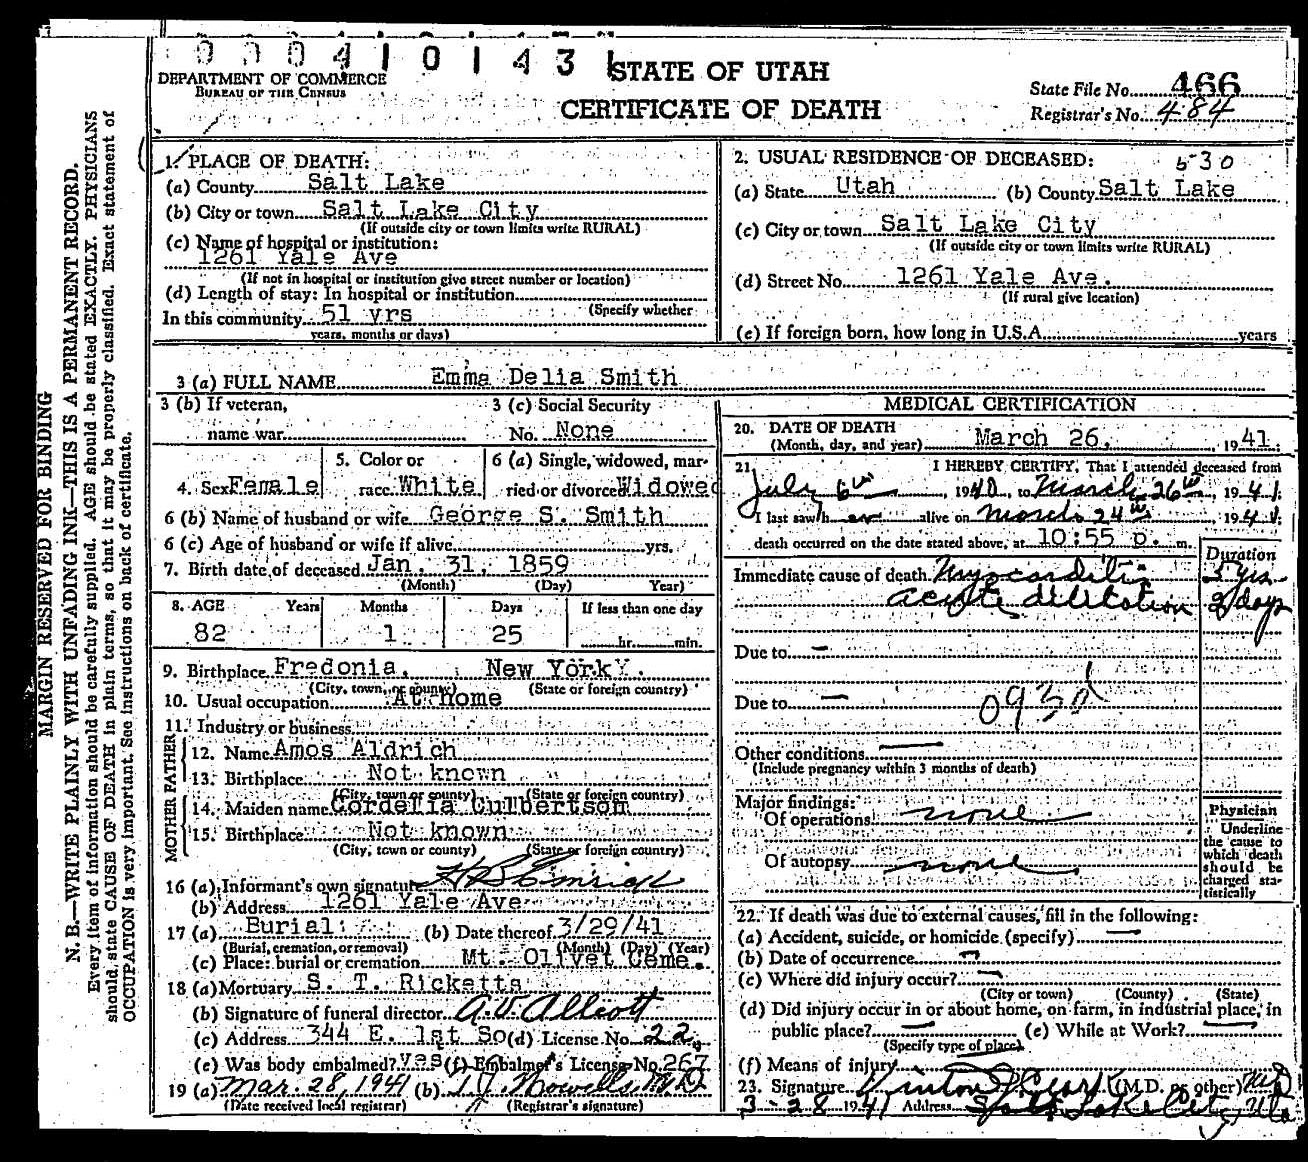 0 0 0 4 1 0 1 4 3 1
STATE OF UTAH
CERTIFICATE OF DEATH
DEPARTMENT OF COMMERCE
BUREAU OF THE CENSUS
State File No. 466
Registrar's No. 484
MARGIN RESERVED FOR BINDING
N. B.—WRITE PLAINLY WITH UNFADING INK—THIS IS A PERMANENT RECORD.
Every item of information should be carefully supplied. AGE should be stated EXACTLY. PHYSICIANS
should state CAUSE OF DEATH in plain terms, so that it may be properly classified. Exact statement of
OCCUPATION is very important. See instructions on back of certificate.
1. PLACE OF DEATH:
(a) County Salt Lake
(b) City or town Salt Lake City
(If outside city or town limits write RURAL)
(c) Name of hospital or institution:
1261 Yale Ave
(If not in hospital or institution give street number or location)
(d) Length of stay: In hospital or institution
(Specify whether
In this community 51 yrs
years, months or days)
2. USUAL RESIDENCE OF DECEASED:
(a) State Utah (b) County Salt Lake
(c) City or town Salt Lake City
(If outside city or town limits write RURAL)
(d) Street No. 1261 Yale Ave.
(If rural give location)
(e) If foreign born, how long in U.S.A. years
3 (a) FULL NAME Emma Delia Smith
3 (b) If veteran,
name war
3 (c) Social Security
No. None
4. Sex Female
5. Color or
race White
6 (a) Single, widowed, mar-
ried or divorced Widowed
6 (b) Name of husband or wife George S. Smith
6 (c) Age of husband or wife if alive yrs.
7. Birth date of deceased Jan. 31, 1859
(Month) (Day) Year)
8. AGE Years Months Days If less than one day
82 1 25 hr. min.
9. Birthplace Fredonia, New York.
(City, town, or county) (State or foreign country)
10. Usual occupation At home
11. Industry or business
FATHER
12. Name Amos Aldrich
13. Birthplace Not known
(City, town or county) (State or foreign country)
MOTHER
14. Maiden name Cordelia Culbertson
15. Birthplace Not known
(City, town or county) (State or foreign country)
16 (a) Informant's own signature
(b) Address 1261 Yale Ave
17 (a) Burial (b) Date thereof 3/29/41
(Burial, cremation, or removal) (Month) (Day) (Year)
(c) Place: burial or cremation Mt. Olivet Ceme.
18 (a) Mortuary S. T. Ricketts
(b) Signature of funeral director
(c) Address 344 E. 1st So (d) License No. 22
(e) Was body embalmed? yes (f) Embalmer's License No. 267
19 (a) Mar. 28, 1941 (b) M.D.
(Date received local registrar) (Registrar's signature)
MEDICAL CERTIFICATION
20. DATE OF DEATH
(Month, day, and year) March 26, 1941.
21. I HEREBY CERTIFY, That I attended deceased from
July 6th, 1940, to March 26th, 1941.
I last saw her alive on March 24th 1941.
death occurred on the date stated above, at 10:55 p. m.
Duration
Immediate cause of death Myocarditis 5 yrs
acute dilitation 2 days
Due to —
Due to —
Other conditions —
(Include pregnancy within 3 months of death)
Major findings:
Of operations none
Of autopsy none
Physician
Underline
the cause to
which death
should be
charged sta-
tistically
22. If death was due to external causes, fill in the following:
(a) Accident, suicide, or homicide (specify) —
(b) Date of occurrence —
(c) Where did injury occur? —
(City or town) (County) (State)
(d) Did injury occur in or about home, on farm, in industrial place, in
public place? — (e) While at Work? —
(Specify type of place)
(f) Means of injury
23. Signature (M.D. or other) MD
3-28 1941 Address Salt Lake City, Uta